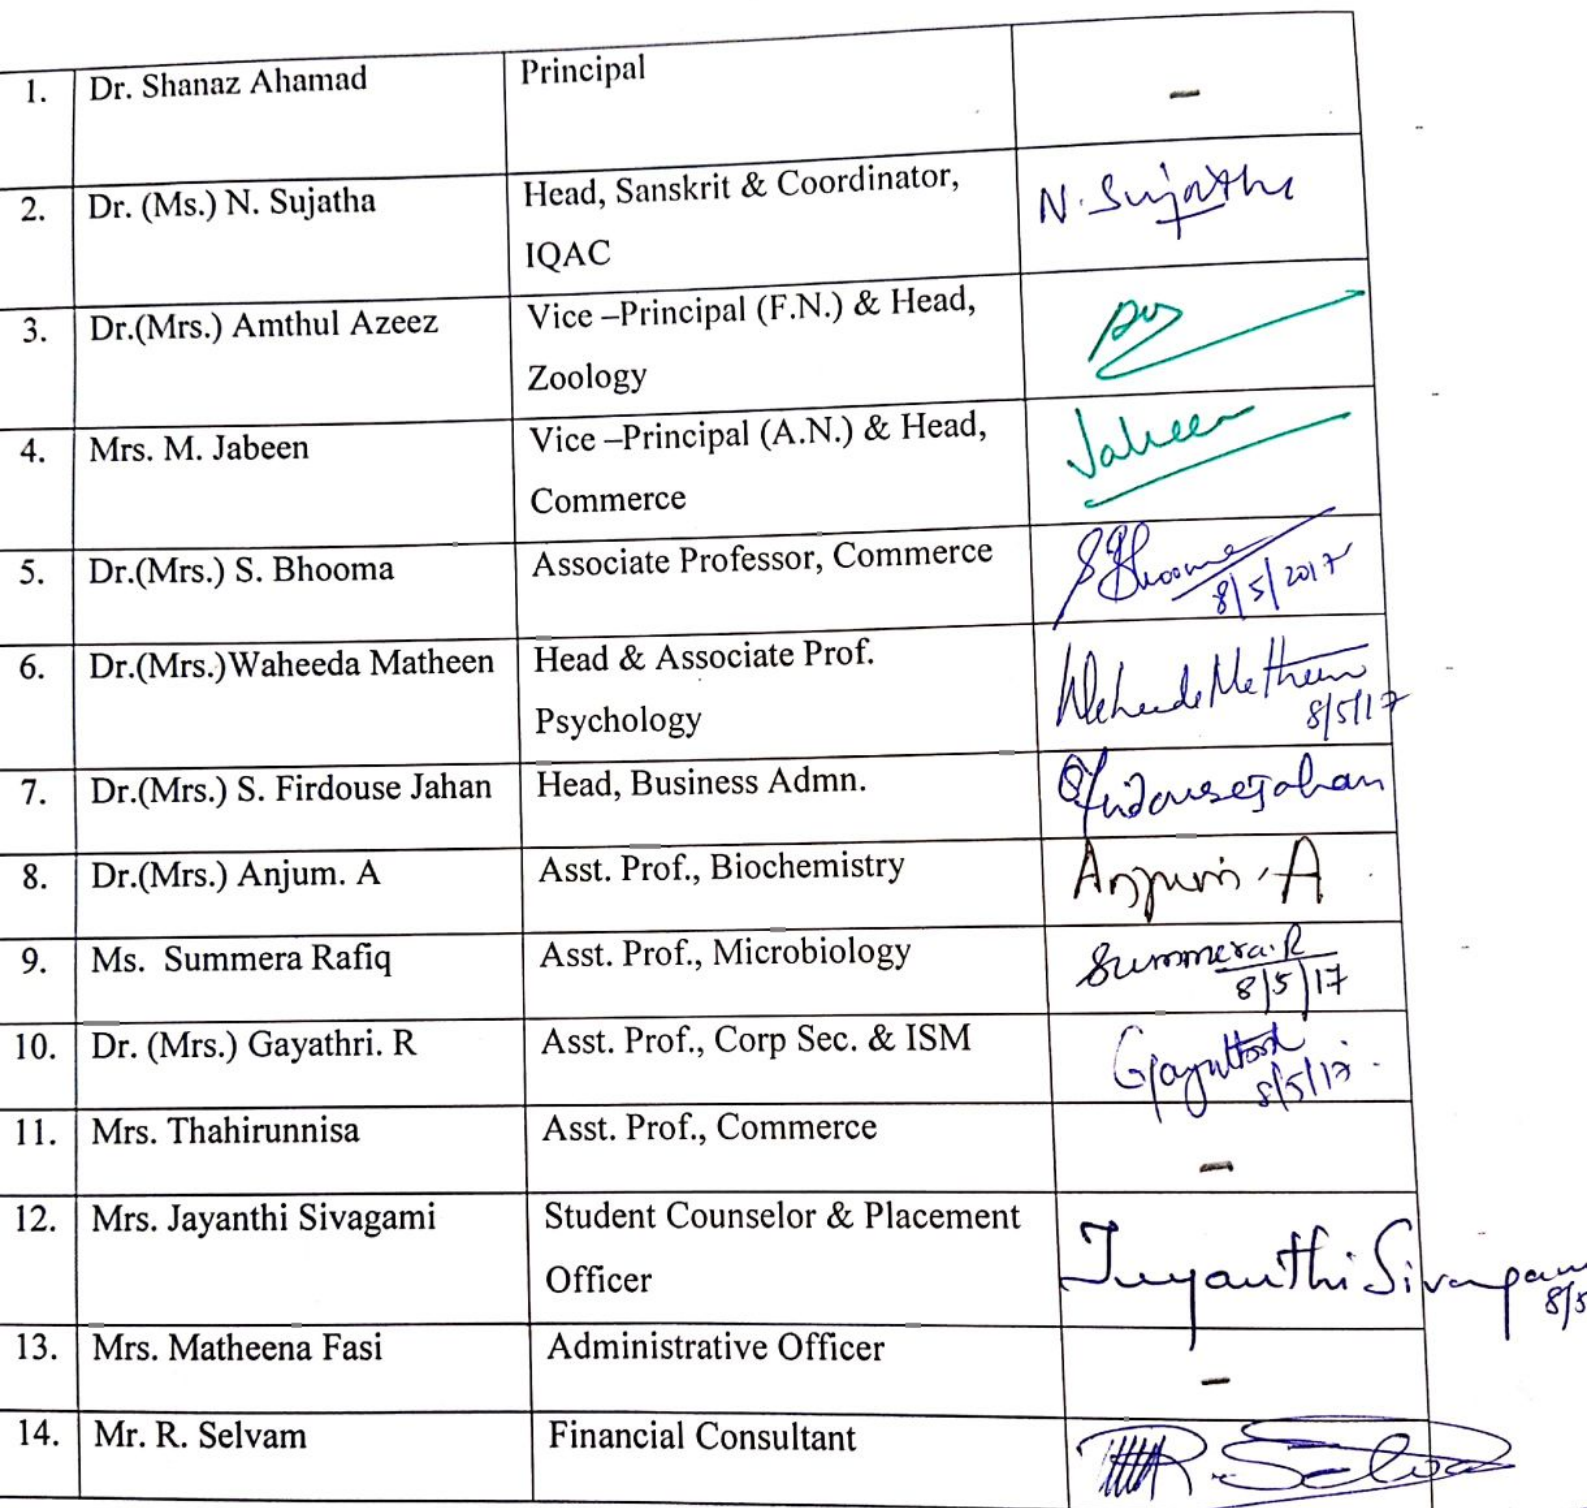 1. Dr. Shanaz Ahamad Principal –
2. Dr. (Ms.) N. Sujatha Head, Sanskrit & Coordinator, N. Sujatha
IQAC
3. Dr.(Mrs.) Amthul Azeez Vice –Principal (F.N.) & Head,
Zoology
4. Mrs. M. Jabeen Vice –Principal (A.N.) & Head, Jabeen
Commerce
5. Dr.(Mrs.) S. Bhooma Associate Professor, Commerce S Bhooma
8/5/2017
6. Dr.(Mrs.)Waheeda Matheen Head & Associate Prof. Waheeda Matheen
Psychology 8/5/17
7. Dr.(Mrs.) S. Firdouse Jahan Head, Business Admn. S Firdouse Jahan
8. Dr.(Mrs.) Anjum. A Asst. Prof., Biochemistry Anjum. A
9. Ms. Summera Rafiq Asst. Prof., Microbiology Summera. R
8/5/17
10. Dr. (Mrs.) Gayathri. R Asst. Prof., Corp Sec. & ISM Gayathri
8/5/17
11. Mrs. Thahirunnisa Asst. Prof., Commerce –
12. Mrs. Jayanthi Sivagami Student Counselor & Placement Jayanthi Sivagam
Officer 8/5
13. Mrs. Matheena Fasi Administrative Officer –
14. Mr. R. Selvam Financial Consultant R. Selva